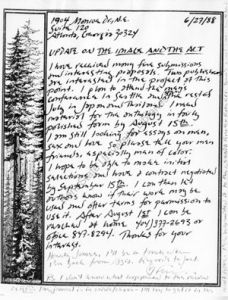 1904 Monroe Dr. N.E. 6/27/88
Suite 120
Atlanta, Georgia 30324
UPDATE ON THE IMAGE AND THE ACT
I have received many fine submissions
and interesting proposals. Two publishers
are interested in the project at this
point. I plan to attend the men's
conference in Seattle and the rest of
July in Japan and Thailand. I need
material for the anthology in fairly
polished form by August 15th.
I am still looking for essays on men,
sex and love so please tell your men
friends, especially men of color.
I hope to be able to make initial
selections and have a contract negotiated
by September 15th. I can then let
authors know if their work may be
used and offer terms for permission to
use it. After August 1st I can be
reached at home 404/377-2693 or
office 847-8294. Thanks for your
interest.